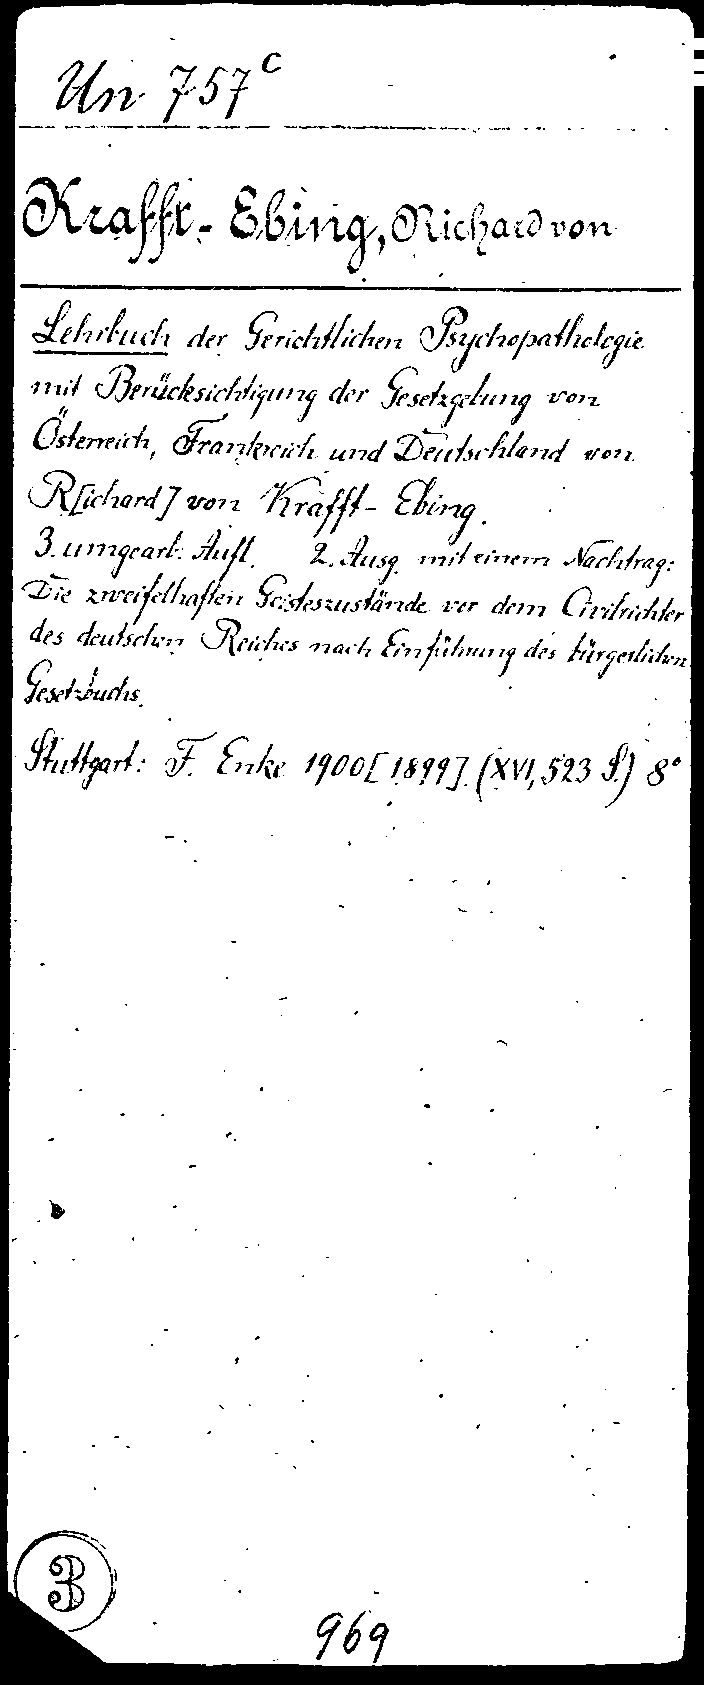 Un 757c
Krafft-Ebing, Richard von
Lehrbuch der Gerichtlichen Psychopathologie
mit Berücksichtigung der Gesetzgebung von
Österreich, Frankreich und Deutschland von
R[ichard] von Krafft-Ebing.
3. umgearb. Aufl. 2. Ausg. mit einem Nachtrag:
Die zweifelhaften Geisteszustände vor dem Civilrichter
des deutschen Reiches nach Einführung des bürgerlichen
Gesetzbuchs.
Stuttgart: F. Enke 1900[1899]. (XVI, 523 S.) 8°
3
969